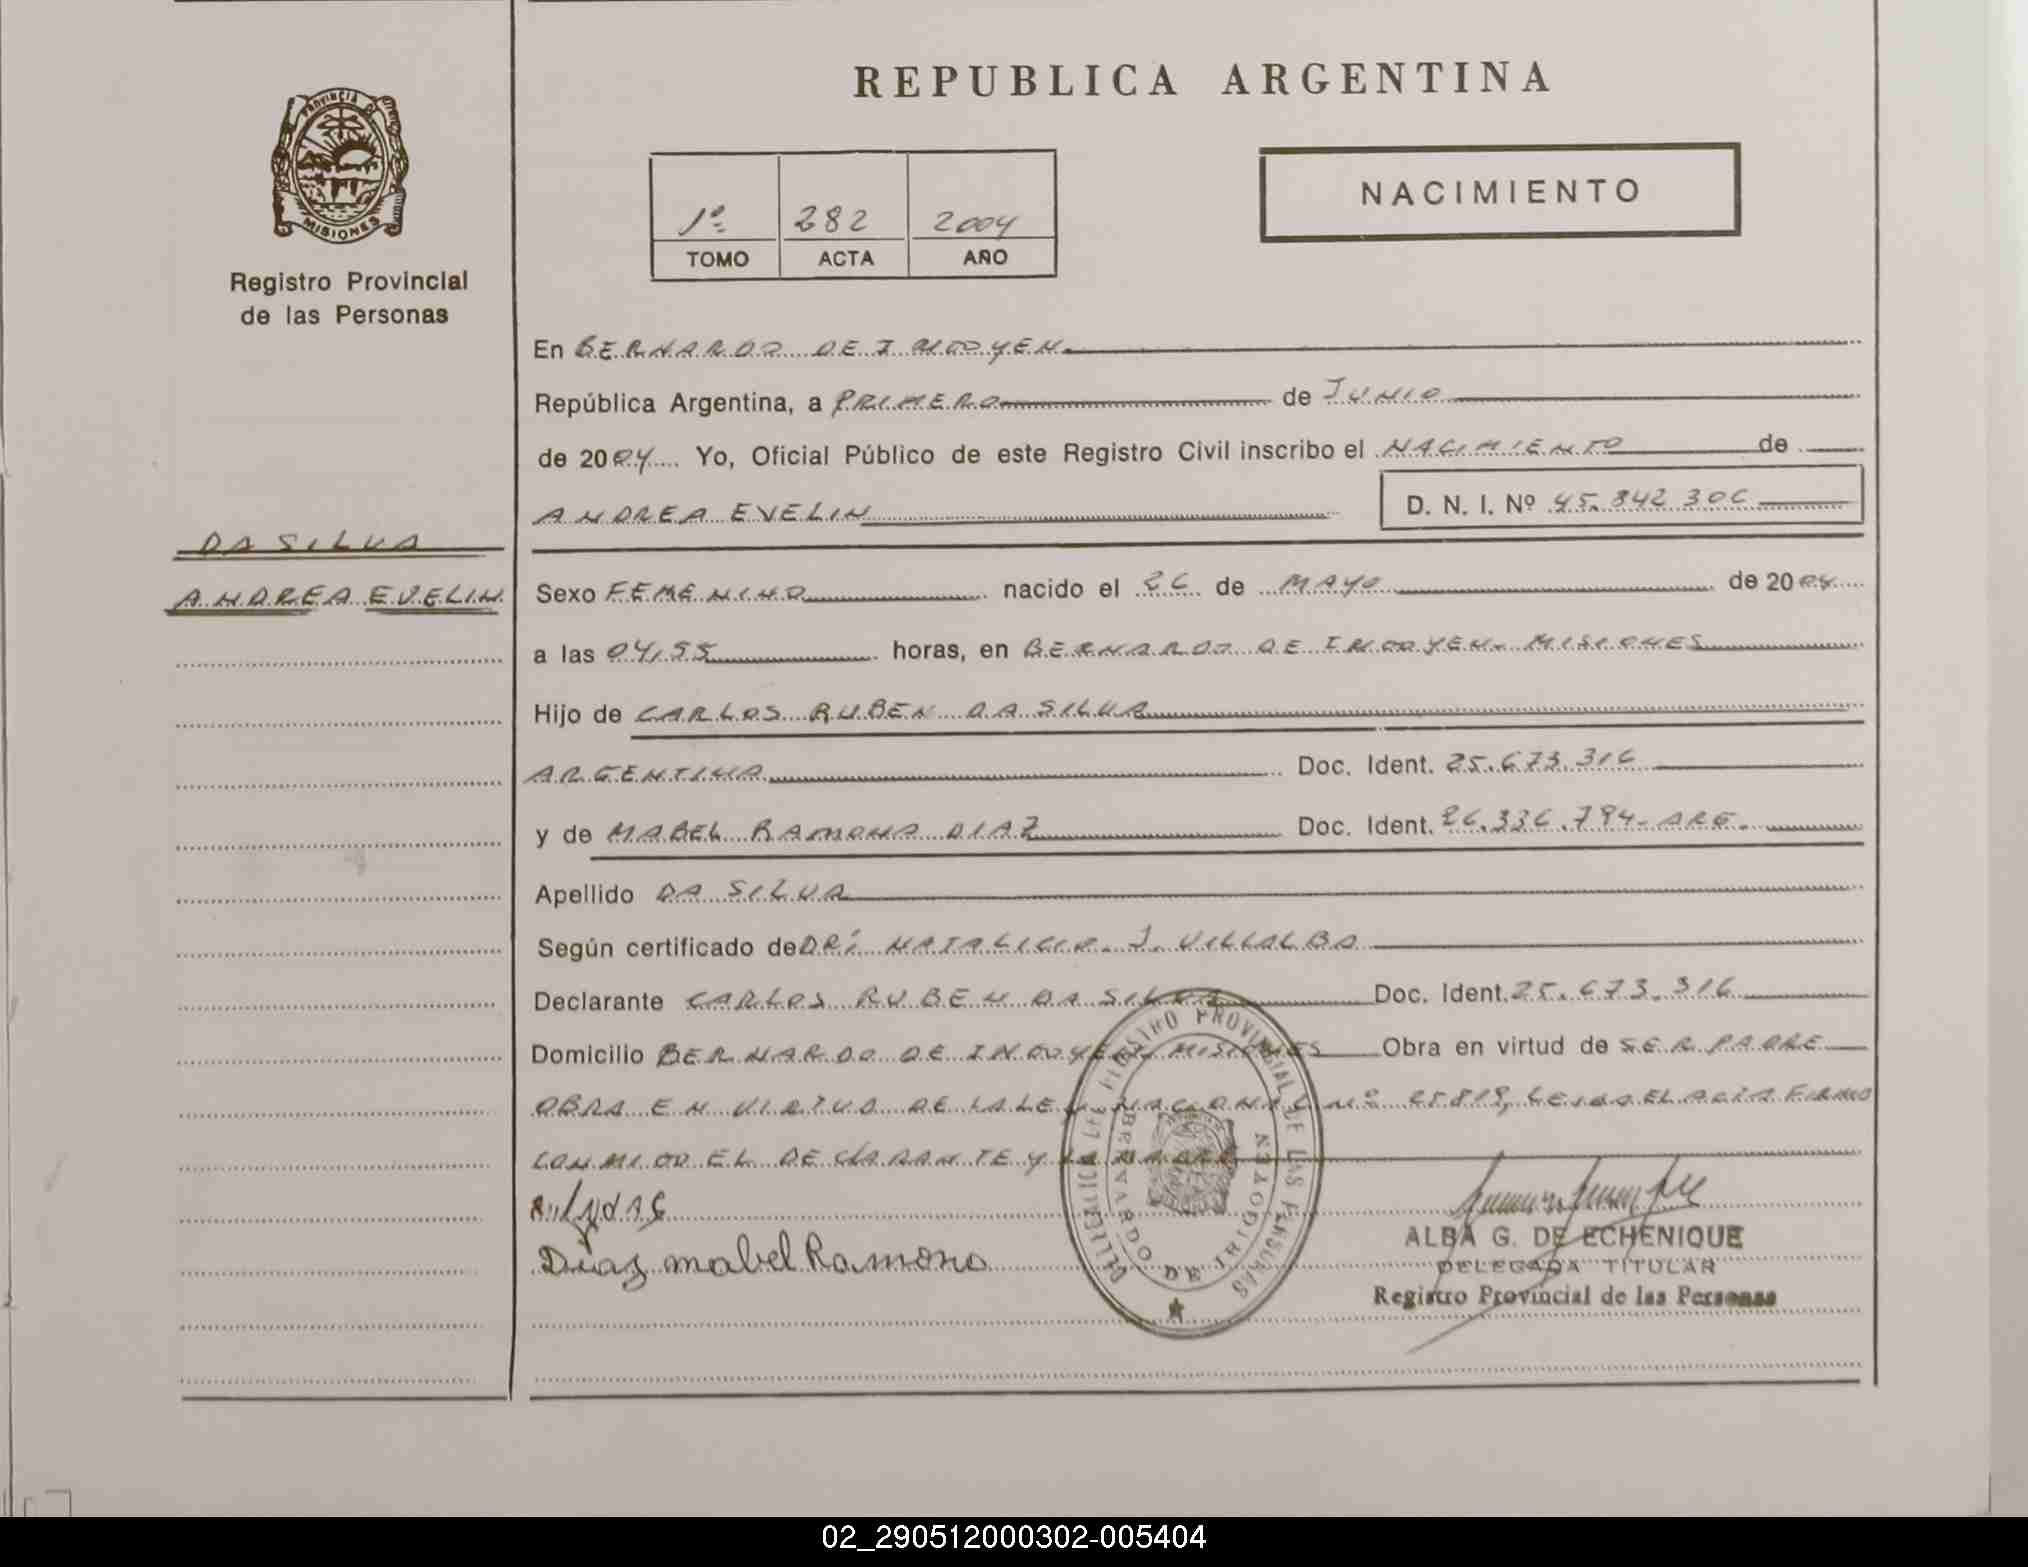 REPUBLICA ARGENTINA
PROVINCIA DE
MISIONES
Registro Provincial
de las Personas
1º 282 2004
TOMO ACTA AÑO
NACIMIENTO
En BERNARDO DE IRIGOYEN
República Argentina, a PRIMERO de JUNIO
de 2004 Yo, Oficial Público de este Registro Civil inscribo el NACIMIENTO de
ANDREA EVELIN D. N. I. Nº 45.842 306
DA SILVA
ANDREA EVELIN
Sexo FEMENINO nacido el 26 de MAYO de 2004
a las 04,55 horas, en BERNARDO DE IRIGOYEN - MISIONES
Hijo de CARLOS RUBEN DA SILVA
ARGENTINA Doc. Ident. 25.673.316
y de MABEL RAMONA DIAZ Doc. Ident. 26.336.794 - ARG.
Apellido DA SILVA
Según certificado de DR: NATALICIO. J. VILLALBA
Declarante CARLOS RUBEN DA SILVA Doc. Ident. 25.673.316
Domicilio BERNARDO DE IRIGOYEN MISIONES Obra en virtud de SER PADRE
OBRA EN VIRTUD DE LA LEY NACIONAL Nº 25.819, LEIDA EL ACTA FIRMO
CONMIGO EL DECLARANTE Y LA MADRE
Diaz mabel Ramona
REGISTRO PROVINCIAL DE LAS PERSONAS
BERNARDO DE IRIGOYEN
ALBA G. DE ECHENIQUE
DELEGADA TITULAR
Registro Provincial de las Personas
02_290512000302-005404